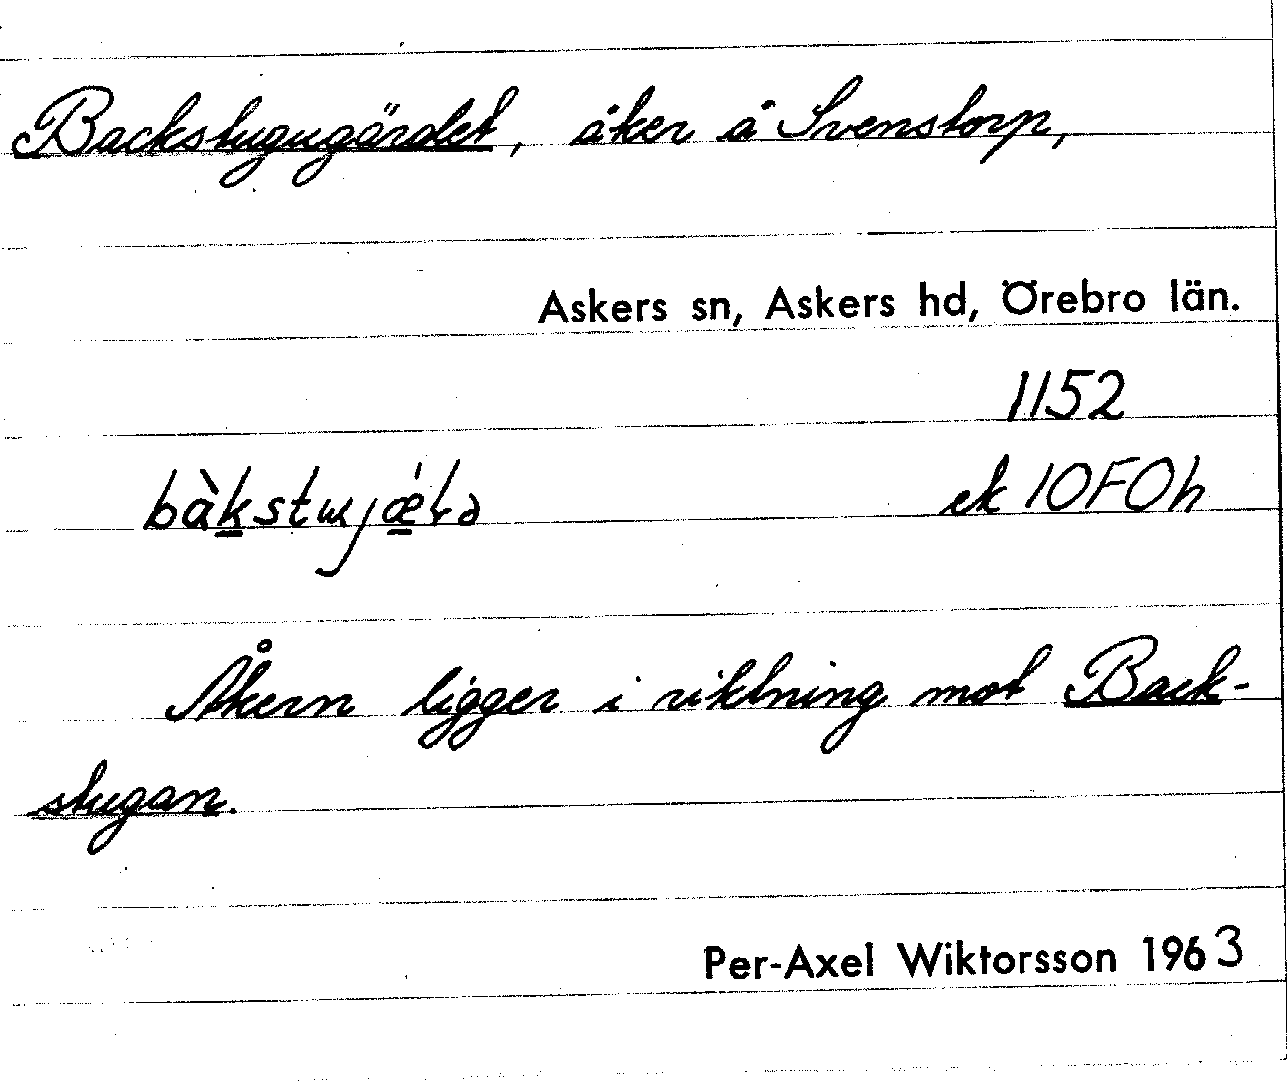 Backstugugärdet, åker å Svenstorp,
Askers sn, Askers hd, Örebro län.
1152
ek 10F0h
Åkern ligger i riktning mot Back-
stugan.
Per-Axel Wiktorsson 1963